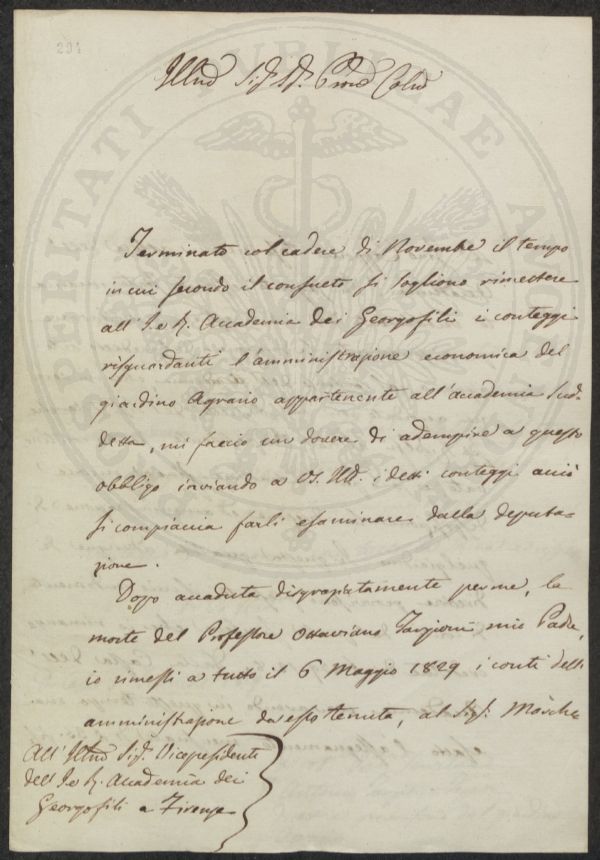 294
PROSPERITATI PUBLICAE AUGENDAE
Illmo Sig. Sig. Prone Colmo
Terminato col cadere di Novembre il tempo
in cui secondo il consueto si sogliono rimettere
all' I. e R. Accademia dei Georgofili i conteggi
risguardanti l'amministrazione economica del
giardino Agrario appartenente all'accademia sud-
detta, mi faccio un dovere di adempire a questo
obbligo inviando a VS. Ill. i detti conteggi acciò
si compiaccia farli esaminare dalla deputa-
zione.
Dopo accaduta disgraziatamente per me, la
morte del Professore Ottaviano Targioni mio Padre,
io rimessi a tutto il 6 Maggio 1829 i conti dell'
amministrazione da esso tenuta, al Sig.
All' Illmo Sig. Vicepresidente
dell' I. e R. Accademia dei
Georgofili a Firenze